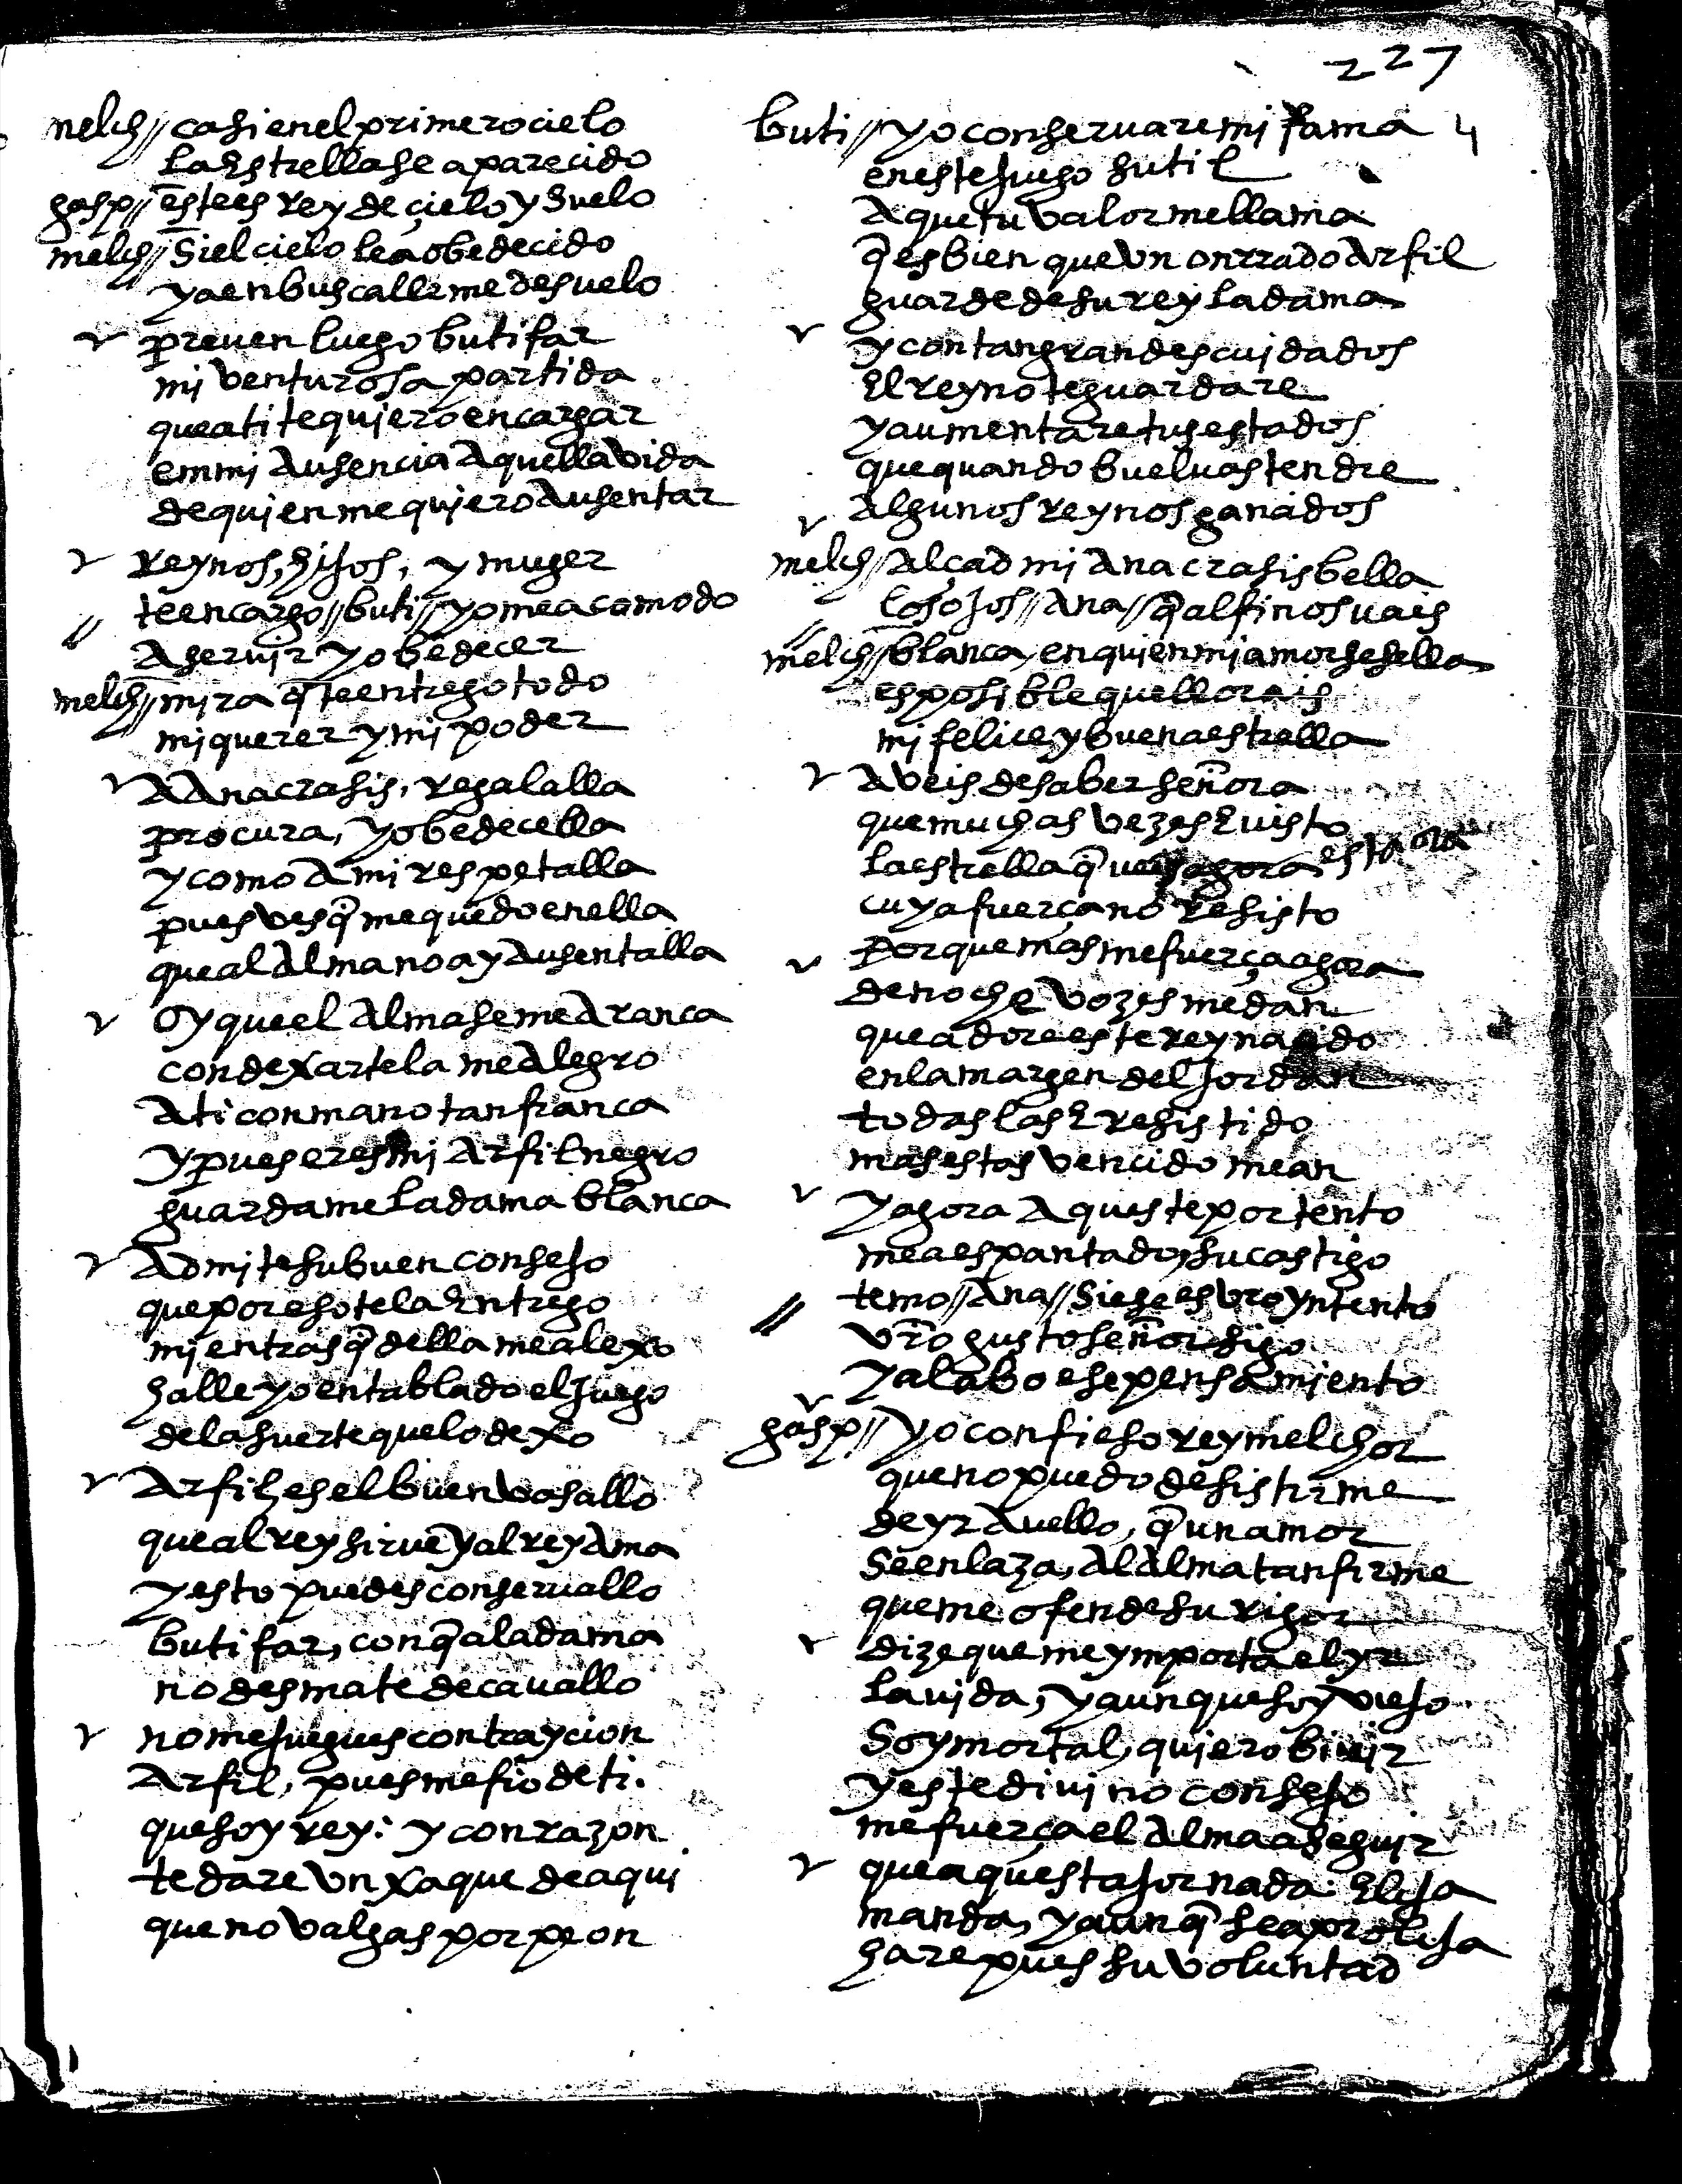 227
melch// casi en el primero cielo
la estrella se a parecido
gasp// este es rey de çielo y suelo
melch// Si el cielo le a obedecido
ya en buscalle me desuelo
preuen luego butifar
mi venturosa partida
que a ti te quiero encargar
em mi Ausencia Aquella vida
de quien me quiero Ausentar
reynos, hijos, y muger
te encargo // buti // yo me acomodo
A seruir y obedecer
melch// mira q̃ te entrego todo
mi querer y mi poder
A Anacrasis, regalalla
procura, y obedecella
y como A mi respetalla
pues ves q̃ me quedo en ella
que al Alma no ay Ausentalla
Oy que el Alma se me Aranca
con dexartela me Alegro
A ti con mano tan franca
y pues eres mi Arfil negro
guardame la dama blanca
Admite su buen consejo
que por eso te la entrego
mientras q̃ della me alexo
halle yo entablado el juego
de la suerte que lo dexo
Arfil, es el buen vasallo
que al rey sirue y al rey Ama
y esto puedes conseruallo
butifar, con q̃ a la dama
no des mate de cauallo
no me juegues con traycion
Arfil, pues me fio de ti.
que soy rey: y con razon
te dare vn xaque de aqui
que no valgas por peon
buti // yo conseruare mi fama 4
en este juego sutil
A que tu valor me llama
q̃ es bien que vn onrrado Arfil
guarde de su rey la dama
y con tan grandes cuidados
El reyno te guardare
y aumentare tus estados
que quando bueluas tendre
Algunos reynos ganados
melch// Alçad mi Anacrasis bella
los ojos // Ana // q̃ al fin os vais
melch// blanca, en quien mi amor se sella
es posible que llorais
mi felice y buena estrella
Aveis de saber señora
que muchas vezes E visto
la estrella q̃ veis agora esta ora
cuya fuerça no resisto
Porque mas me fuerça agora
de noche vozes me dan
que adore este rey nacido
en la margen del Jordan
todas las E resistido
mas estas vencido me an
Y agora Aqueste portento
me a espantado, su castigo
temo // Ana // Si ese es vr̃o yntento
vr̃o gusto señor sigo
Y alabo ese pensamiento
gasp.// Yo confieso rey melchor
que no puedo desistirme
de yr A vello, q̃ un amor
Se enlaza, Al Alma tan firme
que me ofende su rigor
dize que me ymporta el yr
la vida, y aunque soy viejo
Soy mortal, quiero biuir
y este diuino consejo
me fuerça el Alma a seguir
que aquesta jornada Elija
manda, y aunq̃ sea prolija
hare pues su voluntad